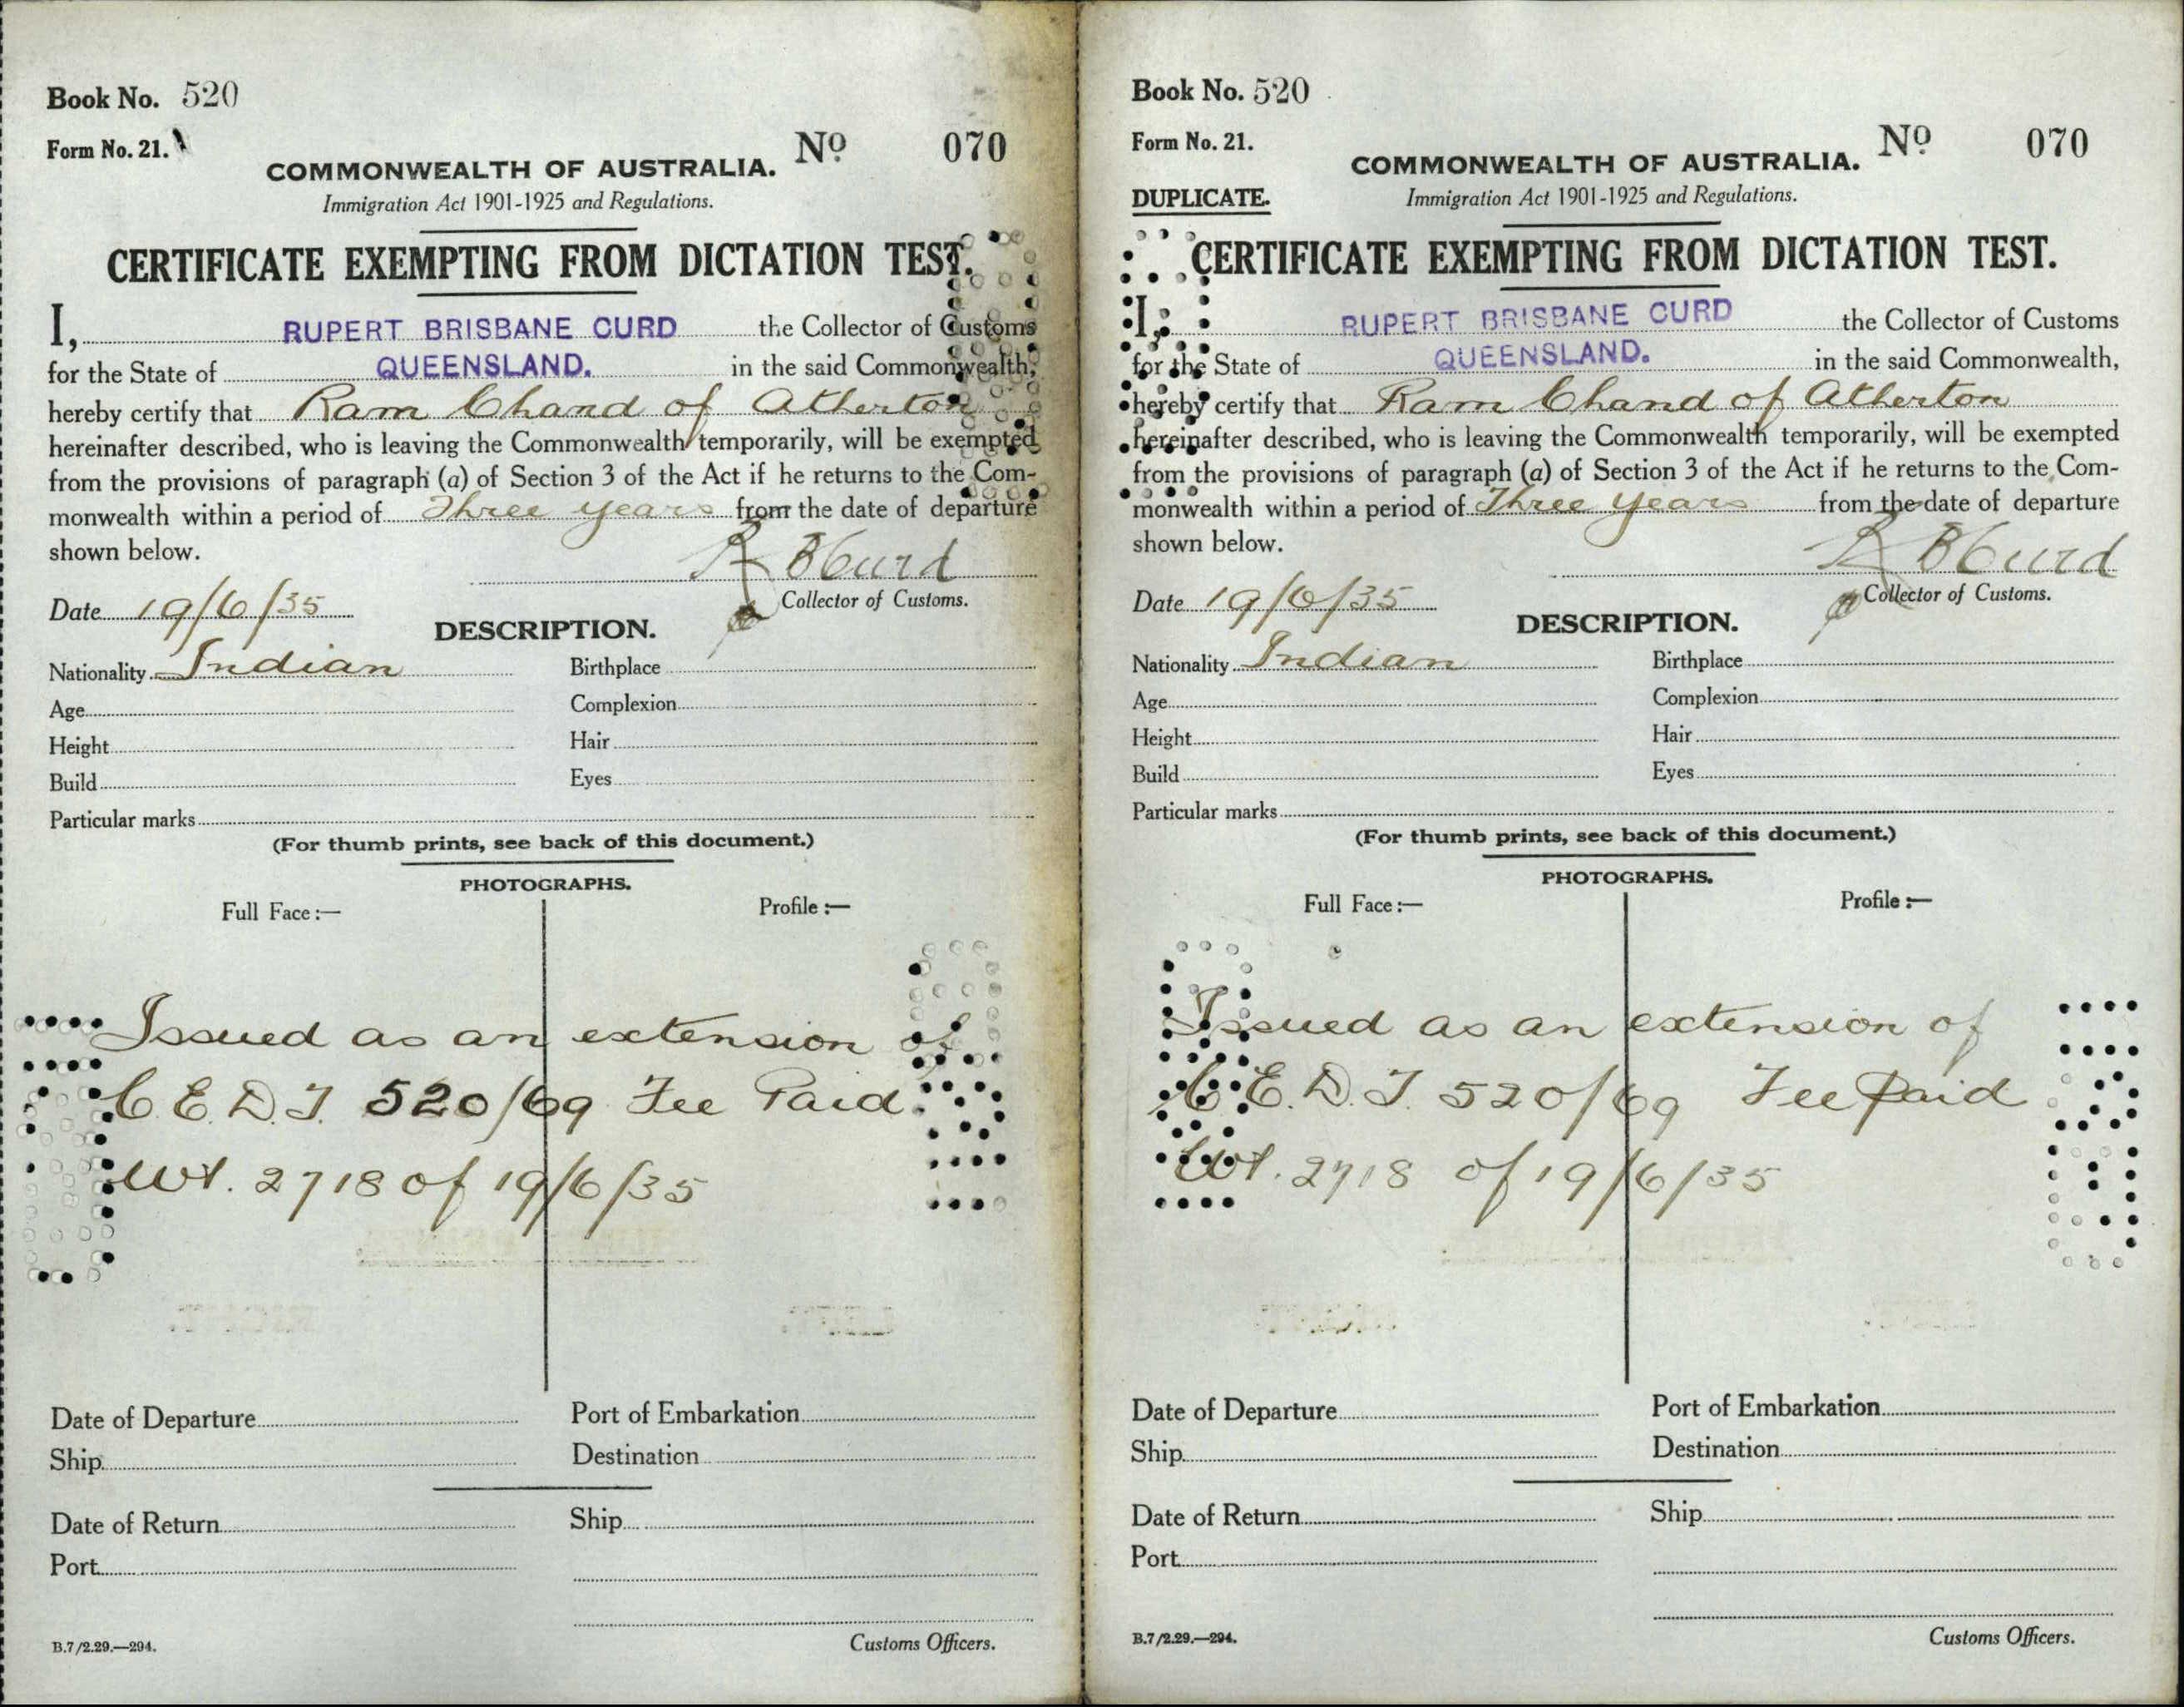 Book No. 520
Form No. 21.
No 070
COMMONWEALTH OF AUSTRALIA.
Immigration Act 1901-1925 and Regulations.
CERTIFICATE EXEMPTING FROM DICTATION TEST.
I, RUPERT BRISBANE CURD the Collector of Customs
for the State of QUEENSLAND. in the said Commonwealth,
hereby certify that Ram Chand of Atherton
hereinafter described, who is leaving the Commonwealth temporarily, will be exempted
from the provisions of paragraph (a) of Section 3 of the Act if he returns to the Com-
monwealth within a period of Three years from the date of departure
shown below.
R B Curd
Date 19/6/35
Collector of Customs.
DESCRIPTION.
Nationality Indian Birthplace
Age Complexion
Height Hair
Build Eyes
Particular marks
(For thumb prints, see back of this document.)
PHOTOGRAPHS.
Full Face :— Profile :—
Issued as an extension of
C.E.D.T. 520/69 Fee Paid
Wt. 2718 of 19/6/35
Date of Departure Port of Embarkation
Ship Destination
Date of Return Ship
Port
B.7/2.29.—294. Customs Officers.
Book No. 520
Form No. 21.
No 070
COMMONWEALTH OF AUSTRALIA.
DUPLICATE. Immigration Act 1901-1925 and Regulations.
CERTIFICATE EXEMPTING FROM DICTATION TEST.
I, RUPERT BRISBANE CURD the Collector of Customs
for the State of QUEENSLAND. in the said Commonwealth,
hereby certify that Ram Chand of Atherton
hereinafter described, who is leaving the Commonwealth temporarily, will be exempted
from the provisions of paragraph (a) of Section 3 of the Act if he returns to the Com-
monwealth within a period of Three years from the date of departure
shown below.
R B Curd
Date 19/6/35
Collector of Customs.
DESCRIPTION.
Nationality Indian Birthplace
Age Complexion
Height Hair
Build Eyes
Particular marks
(For thumb prints, see back of this document.)
PHOTOGRAPHS.
Full Face :— Profile :—
Issued as an extension of
C.E.D.T. 520/69 Fee Paid
Wt. 2718 of 19/6/35
Date of Departure Port of Embarkation
Ship Destination
Date of Return Ship
Port
B.7/2.29.—294. Customs Officers.